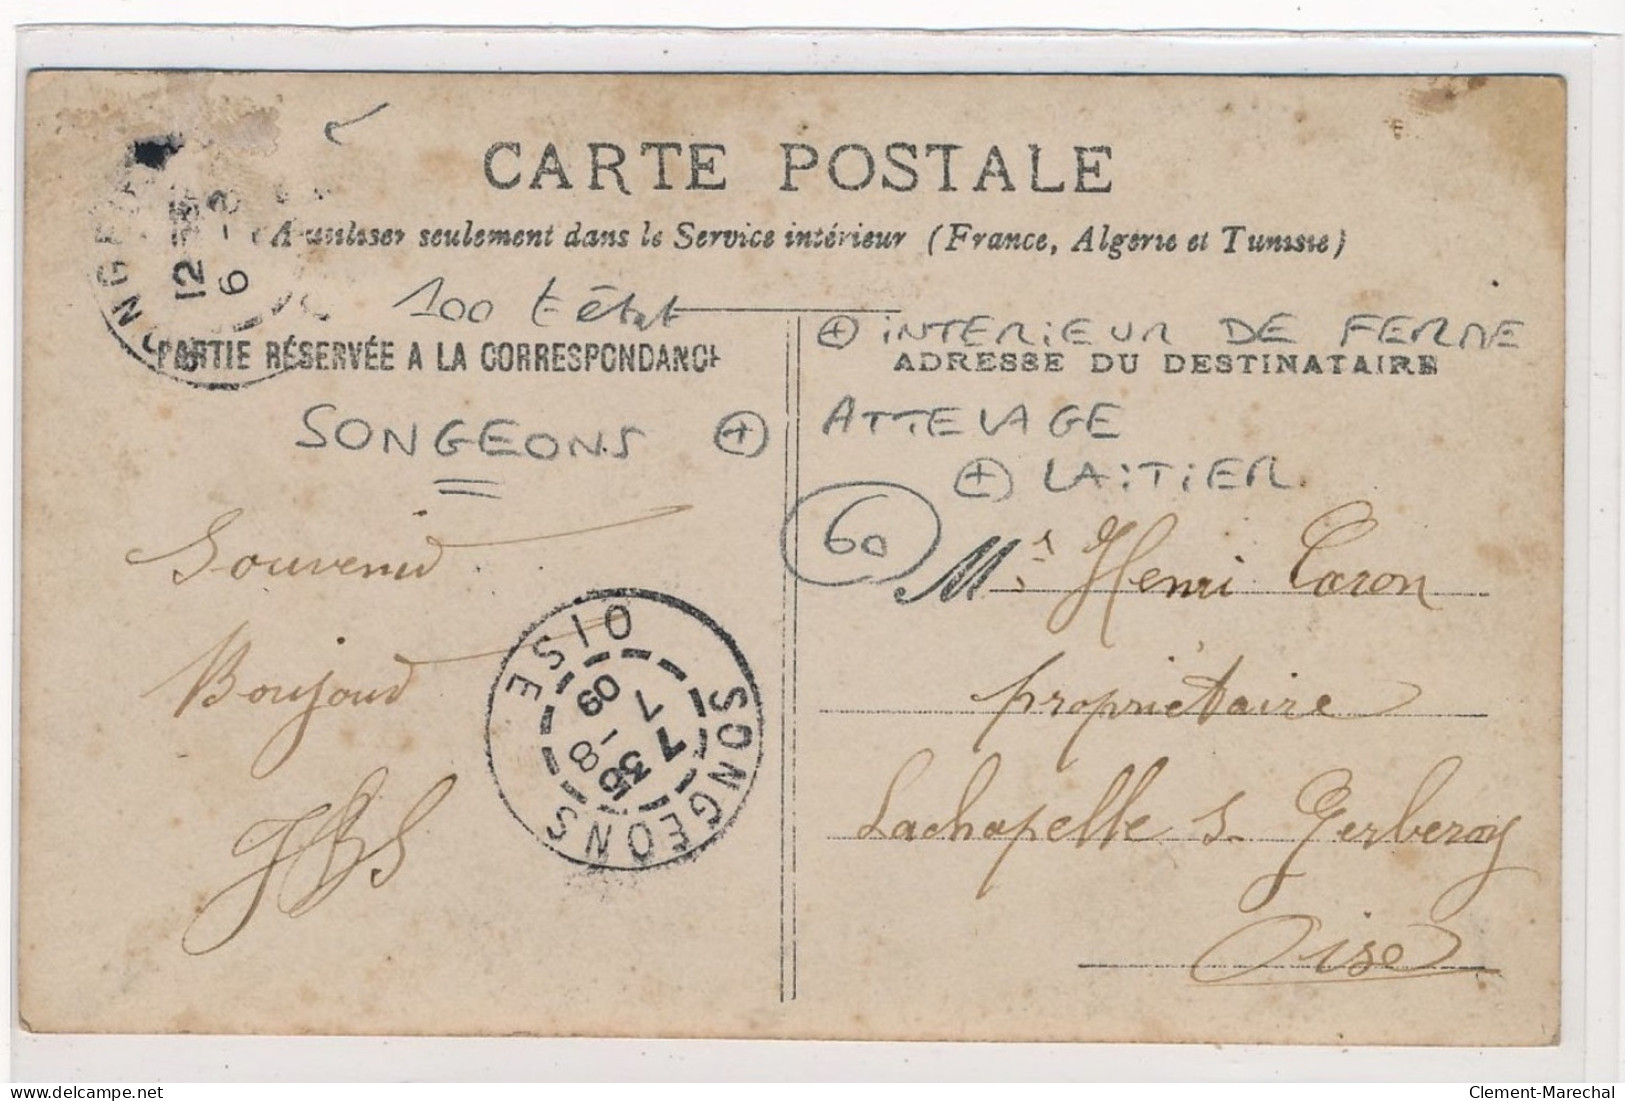 CARTE POSTALE
A utiliser seulement dans le Service intérieur (France, Algérie et Tunisie)
100 t. état
PARTIE RÉSERVÉE A LA CORRESPONDANCE
⊕ INTERIEUR DE FERME
ADRESSE DU DESTINATAIRE
SONGEONS ⊕ ATTELAGE
⊕ LAITIER.
60
Souvenir
Boujour
Mr Henri Caron
propriétaire
Lachapelle s. Gerberoy
Oise
SONGEONS OISE
7 35
7 - 8
09
12
6 - 8
delcampe.net
Clement-Marechal